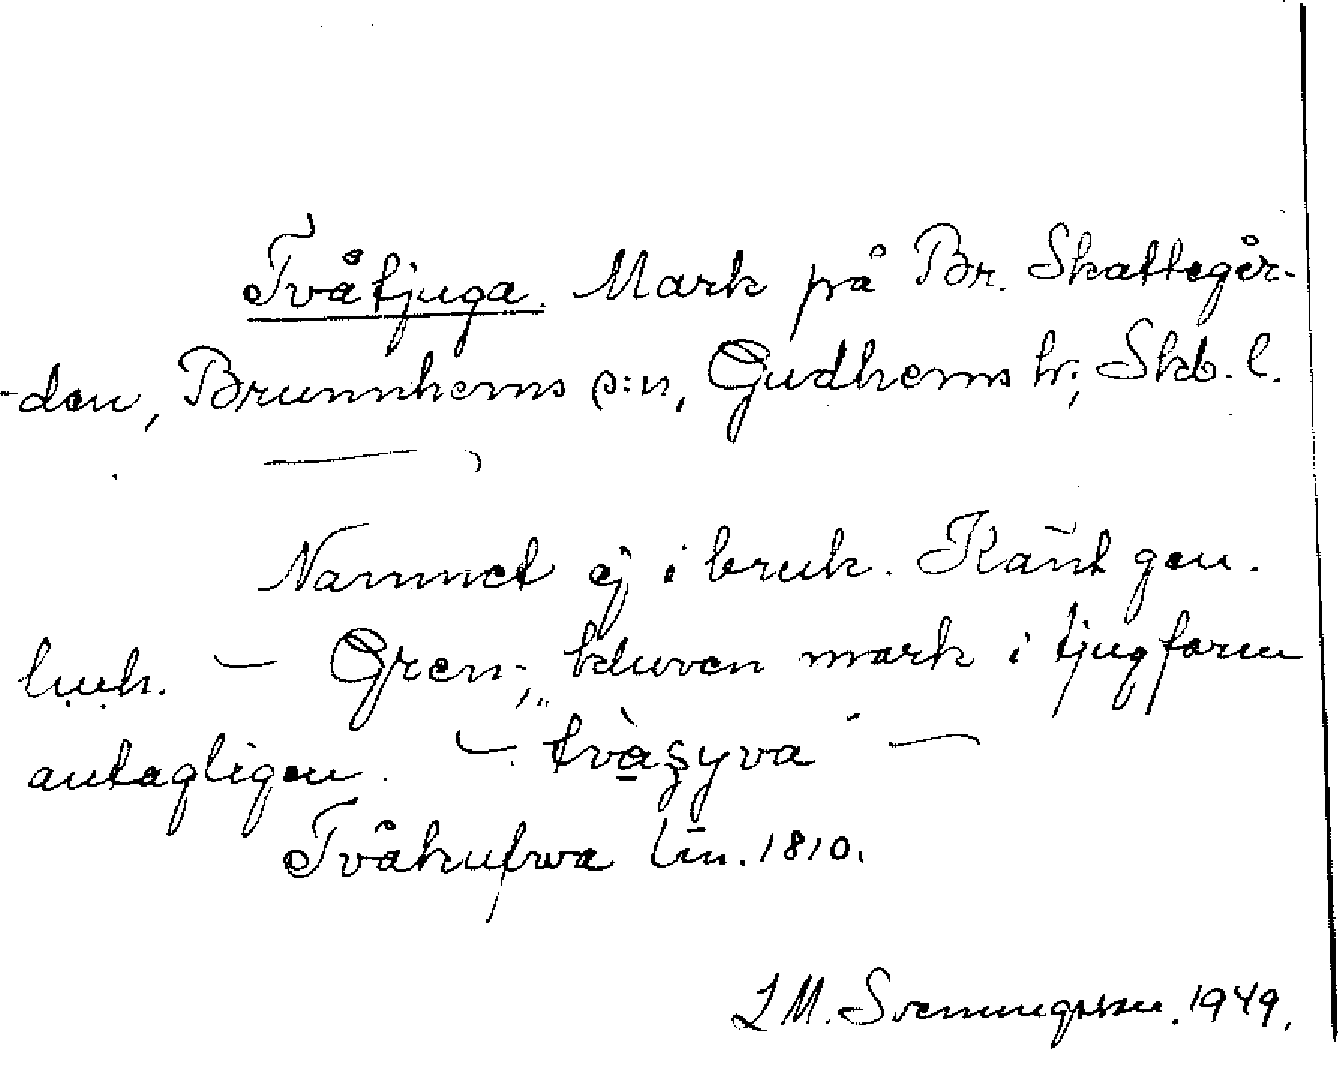 Tvåtjuga. Mark på Br. Skattegår-
-den, Brunnhems s:n, Gudhems hr; Skb. l.
Namnet ej i bruk. Känt gen.
— Gren-, kluven mark i tjugform
antagligen. — tvàşyva —
Tvåkufwa Lm. 1810.
L M. Svenungsson. 1949.